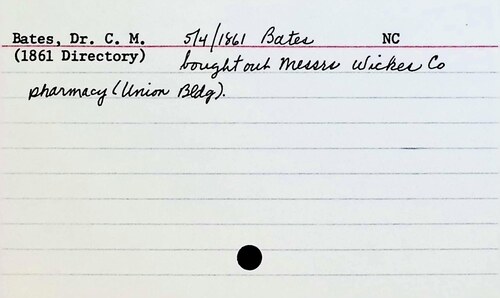 Bates, Dr. C. M. 5/4/1861 Bates NC
(1861 Directory) bought out Messrs Wickes Co
pharmacy (Union Bldg).